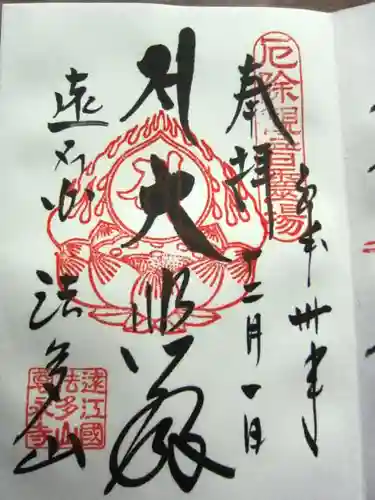 厄除觀音靈場
平成卅年
奉拝
二月一日
大悲閣
法多山
遠江國
法多山
尊永寺